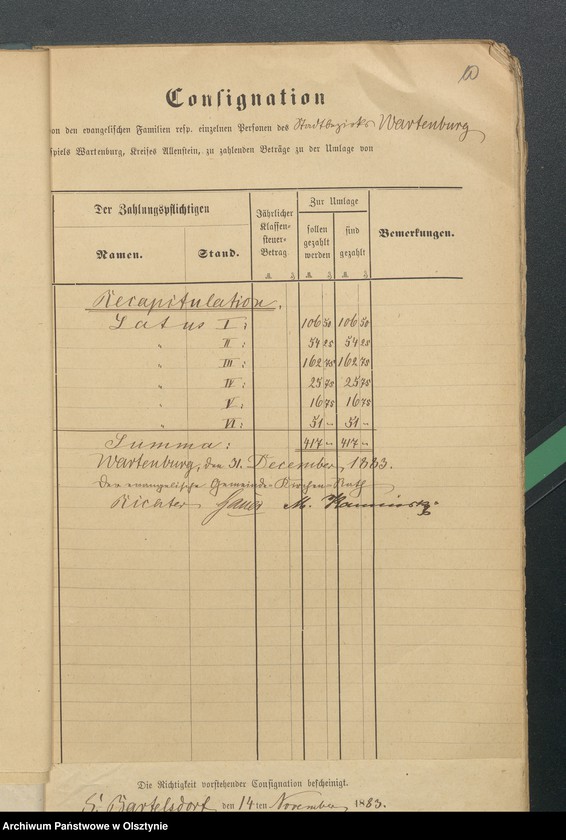 10
Consignation
on den evangelischen Familien resp. einzelnen Personen des Stadtbezirks Wartenburg
spiels Wartenburg, Kreises Allenstein, zu zahlenden Beträge zu der Umlage von
Der Zahlungspflichtigen
Namen. Stand.
Jährlicher Klassen-steuer-Betrag
Zur Umlage
sollen gezahlt werden
sind gezahlt
Bemerkungen.
Recapitulation.
Latus I: 106 50 106 50
" II: 54 25 54 25
" III: 162 75 162 75
" IV: 25 75 25 75
" V: 16 75 16 75
" VI: 51 " 51 "
Summa: 417 " 417 "
Wartenburg, den 31. December 1883.
Der evangelische Gemeinde-Kirchen-Rath
Richter M.
Die Richtigkeit vorstehender Consignation bescheinigt.
Bartelsdorf den 14ten November 1883.
Archiwum Państwowe w Olsztynie